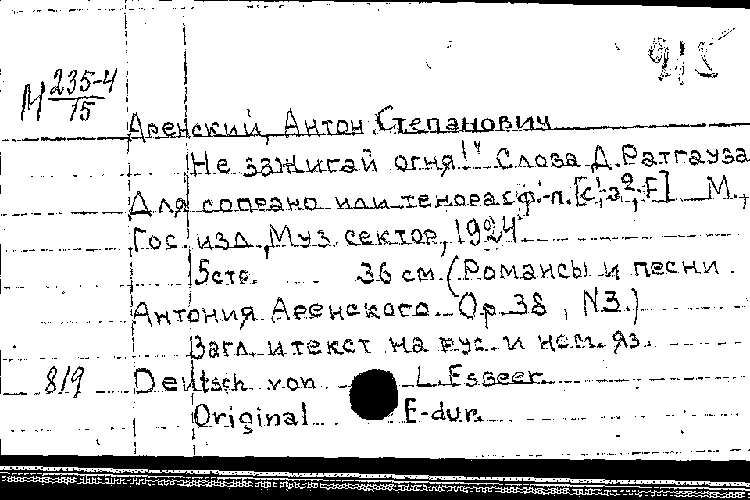 915
М 235-4
15
Аренский, Антон Степанович
Не зажигай огня!" Слова Д. Ратгауза
Для сопрано или тенора с ф.-п. [c¹; a²; E] М.,
Гос. изд., Муз. сектор, 1924
5 стр. 36 см. (Романсы и песни
Антония Аренского. Op. 38, N3.)
Загл. и текст на рус. и нем. яз.
819 Deutsch von L. Esbeer.
Original E-dur.